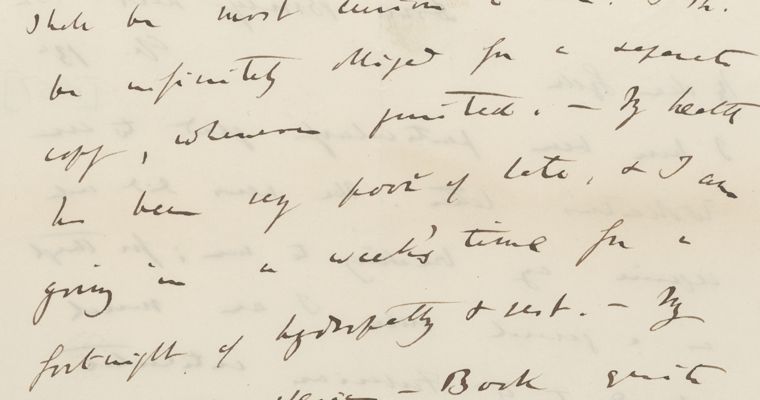 shall be most curious
be infinitely obliged for a separate
copy, whenever printed. — My health
has been very poor of late, & I am
going in a week's time for a
fortnight of hydropathy & rest. — My
— Book quite